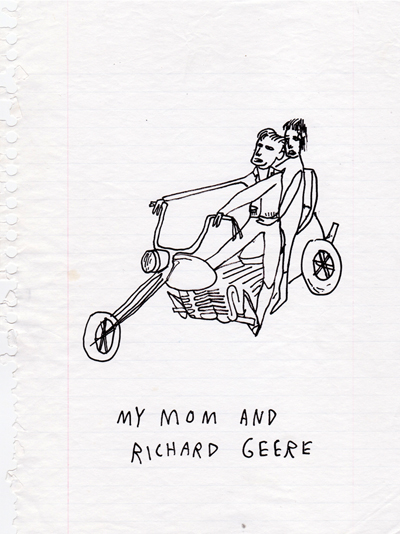 MY MOM AND
RICHARD GEERE